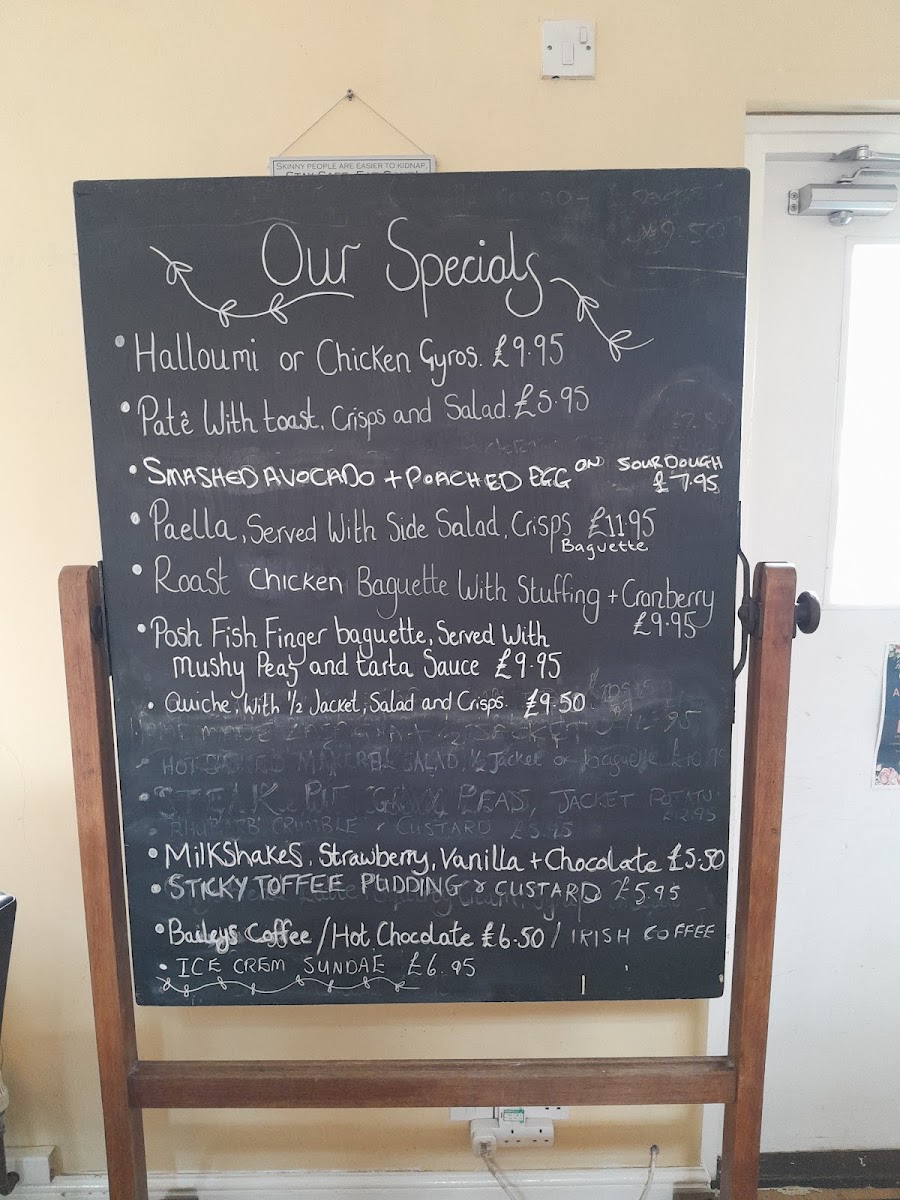 SKINNY PEOPLE ARE EASIER TO KIDNAP.
Our Specials
• Halloumi or Chicken Gyros. £9.95
• Patê With toast, Crisps and Salad. £5.95
• SMASHED AVOCADO + POACHED EGG ON SOURDOUGH
£7.95
• Paella, Served With Side Salad, Crisps £11.95
Baguette
• Roast Chicken Baguette With Stuffing + Cranberry
£9.95
• Posh Fish Finger baguette, Served With
mushy Peas and tarta Sauce £9.95
• Quiche, With 1/2 Jacket, Salad and Crisps. £9.50
SALAD, 1/2 Jacket or baguette
• STEAK PIE PEAS, JACKET POTATO
£12.95
RHUBARB CRUMBLE & CUSTARD £5.95
• MilkShakes, Strawberry, Vanilla + Chocolate £5.50
• STICKY TOFFEE PUDDING & CUSTARD £5.95
• Baileys Coffee / Hot Chocolate £6.50 / IRISH COFFEE
• ICE CREM SUNDAE £6.95